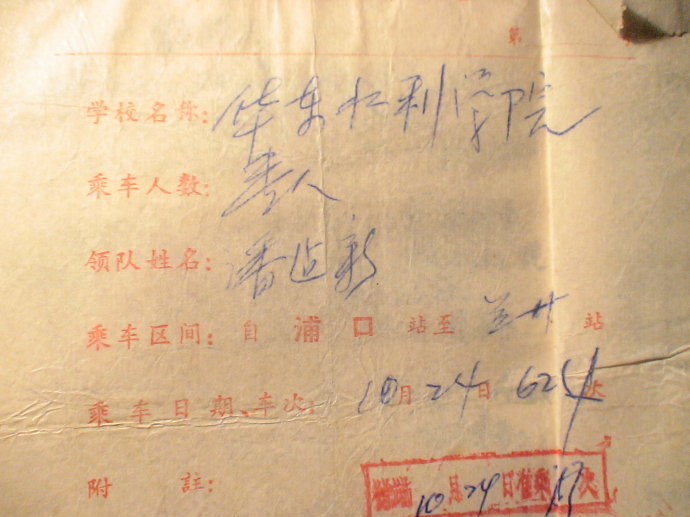 第
学校名称: 华东水利学院
乘车人数: 壹人
领队姓名: 潘造新
乘车区间: 自 浦口 站至 兰州 站
乘车日期、车次: 10月24日 624次
附 註:
10月24日准乘 次